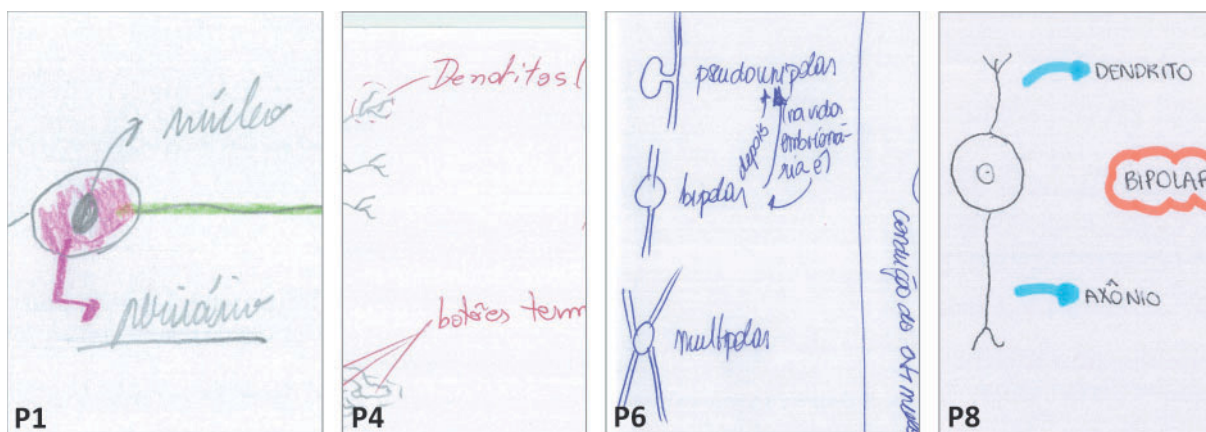 núcleo
pericário
P1
Dendritos (
botões term
P4
pseudounipolar
depois
(na vida
embrioná-
ria é)
bipolar
multipolar
condução do estímulo
P6
DENDRITO
BIPOLAR
AXÔNIO
P8